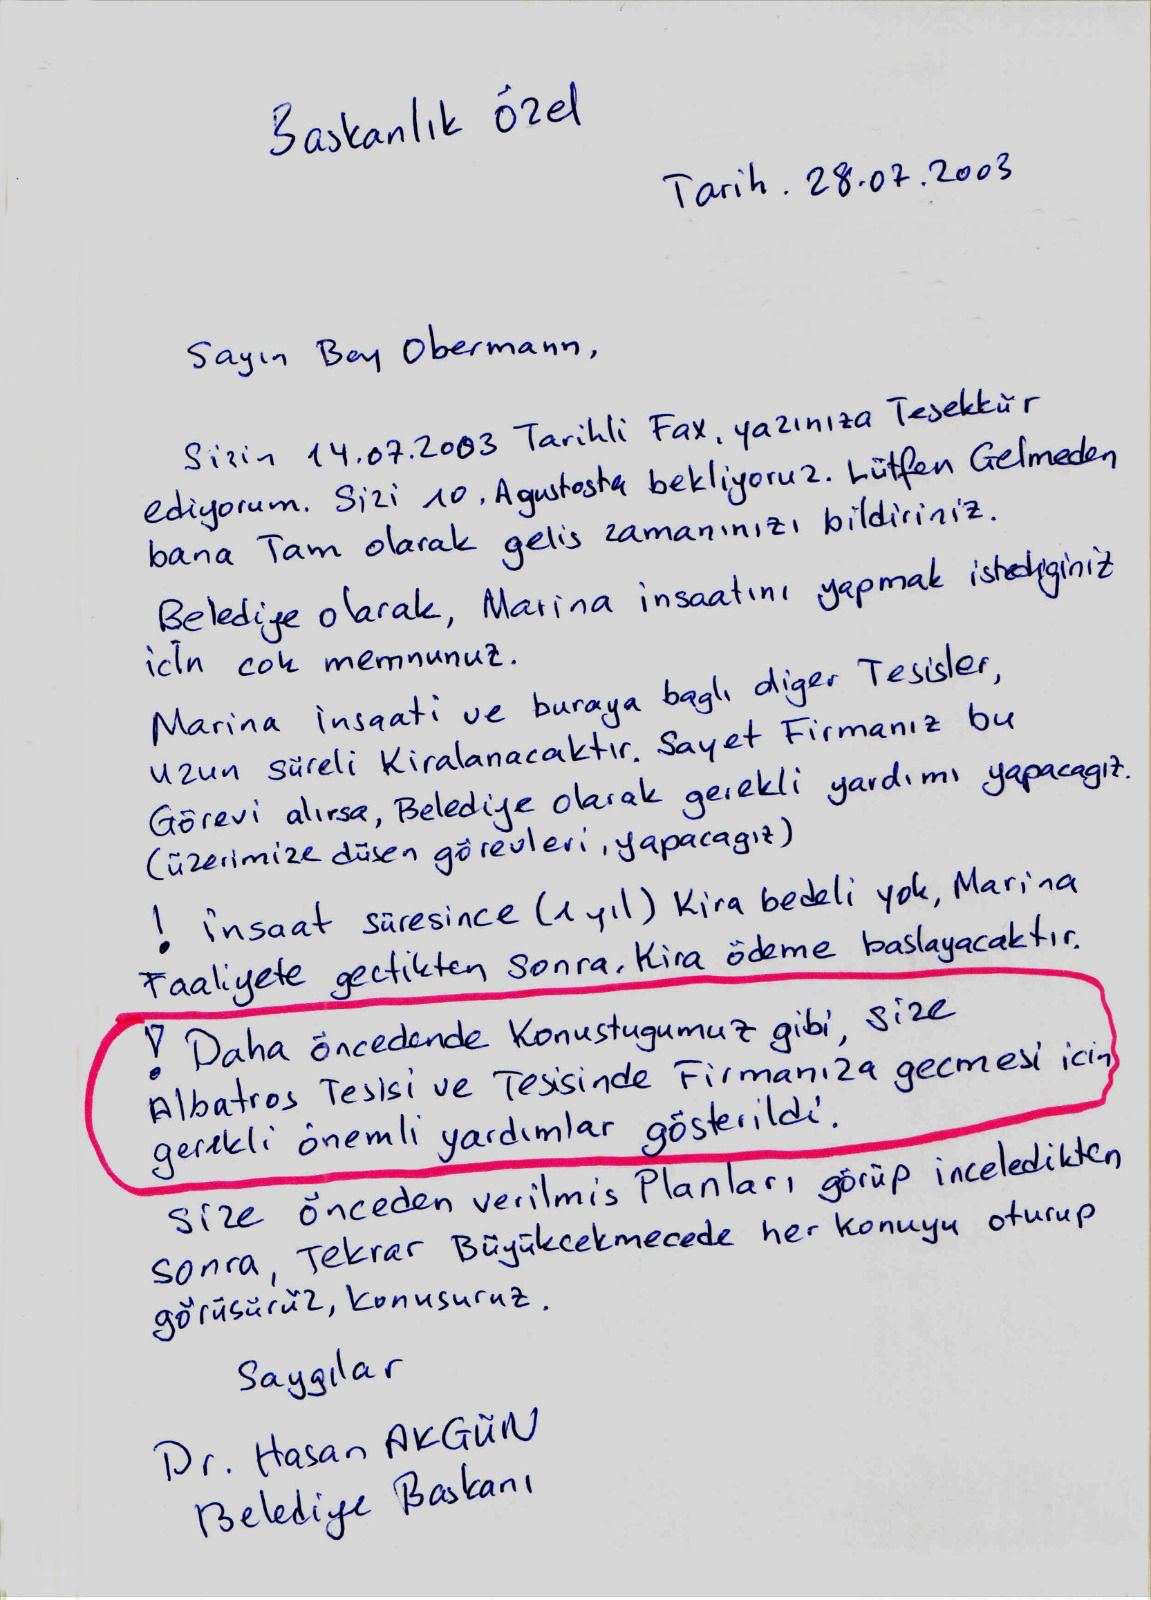 Baskanlık Özel
Tarih. 28.07.2003
Sayın Bey Obermann,
Sizin 14.07.2003 Tarihli Fax, yazınıza Tesekkür
ediyorum. Sizi 10. Agustosta bekliyoruz. Lütfen Gelmeden
bana Tam olarak gelis zamanınızı bildiriniz.
Belediye olarak, Marina insaatını yapmak istediginiz
icin cok memnunuz.
Marina insaati ve buraya baglı diger Tesisler,
uzun süreli Kiralanacaktır. Sayet Firmanız bu
Görevi alırsa, Belediye olarak gerekli yardımı yapacagız.
(üzerimize düsen görevleri, yapacagız)
! insaat süresince (1 yıl) Kira bedeli yok, Marina
Faaliyete gectikten Sonra, Kira ödeme baslayacaktır.
! Daha öncedende Konustugumuz gibi, size
Albatros Tesisi ve Tesisinde Firmanıza gecmesi icin
gerekli önemli yardımlar gösterildi.
Size önceden verilmis Planları görüp inceledikten
sonra, Tekrar Büyükcekmecede her konuyu oturup
görüsürüz, konusuruz.
Saygılar
Dr. Hasan AKGÜN
Belediye Baskanı